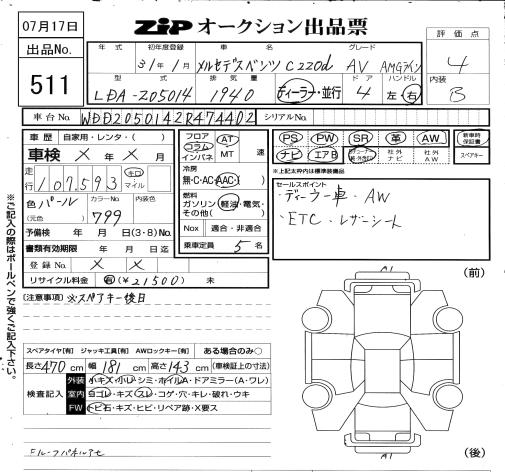 07月17日
ZIPオークション出品票
評価点
出品No.
511
年式 初年度登録 車名 グレード
31年1月 メルセデスベンツ C220d AV AMGライン
4
型式 排気量 ドア ハンドル
内装
LDA-205014 1940 ディーラー・並行 4 左・右
B
車台No. WDD2050142R474402 シリアルNo.
車歴 自家用・レンタ・( )
車検 × 年 × 月
走行 107,593 キロ マイル
色 パール カラーNo. 799 内装色
(元色)
予備検 年 月 日(3・8)No.
書類有効期限 年 月 日迄
登録No. × ×
リサイクル料金 有(¥21500) 未
フロア コラム インパネ AT MT 速
冷房
無・C・AC・AAC・( )
燃料
ガソリン・軽油・電気・その他( )
Nox 適合・非適合
乗車定員 5 名
PS PW SR 革 AW 新車時保証書
ナビ エアB 社外ナビ 社外AW スペアキー
※上記太枠内は標準装備品
セールスポイント
・ディーラー車・AW
・ETC・レザーシート
※ご記入の際はボールペンで強くご記入下さい。
(注意事項)※スペアキー後日
(前)
スペアタイヤ[有] ジャッキ工具[有] AWロックキー[有] ある場合のみ○
長さ470cm 幅181cm 高さ143cm (車検証上の寸法)
検査記入
外装 小キズ・小凹・シミ・ホイルA・ドアミラー(A・ワレ)
室内 ヨゴレ・キズ・スレ・コゲ・穴・キレ・破れ・ウキ
FW トビ石・キズ・ヒビ・リペア跡・X要ス
A1
A1
(後)